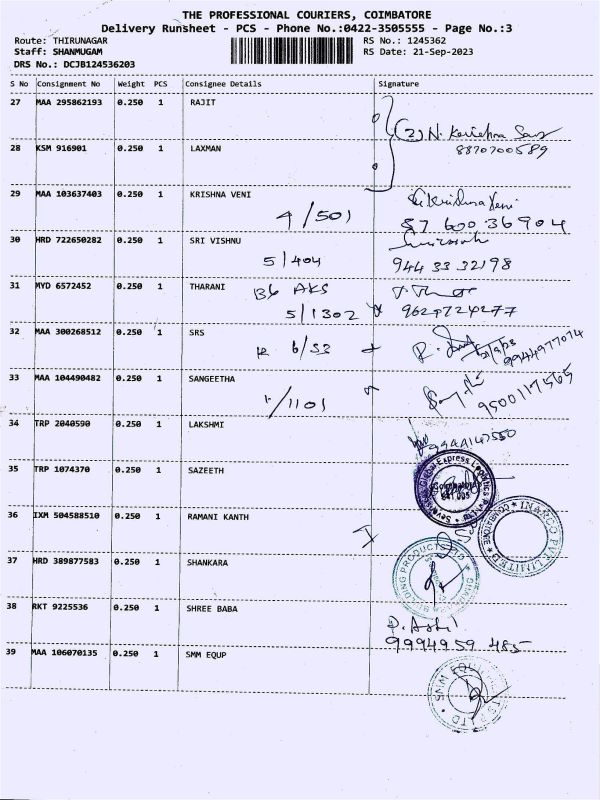 THE PROFESSIONAL COURIERS, COIMBATORE
Delivery Runsheet - PCS - Phone No.:0422-3505555 - Page No.:3
Route: THIRUNAGAR RS No.: 1245362
Staff: SHANMUGAM RS Date: 21-Sep-2023
DRS No.: DCJB124536203
S No Consignment No Weight PCS Consignee Details Signature
27 MAA 295862193 0.250 1 RAJIT
(2) N.
28 KSM 916901 0.250 1 LAXMAN 8870700589
29 MAA 103637403 0.250 1 KRISHNA VENI Krishna Veni
4/501 87600 36904
30 HRD 722650282 0.250 1 SRI VISHNU
5/404 944 33 32198
31 MYD 6572452 0.250 1 THARANI B6 AKS
5/1302 9629724277
32 MAA 300268512 0.250 1 SRS
6/53 9944977074
33 MAA 104490482 0.250 1 SANGEETHA
1/1101 9500117565
34 TRP 2040590 0.250 1 LAKSHMI
9944147550
35 TRP 1074370 0.250 1 SAZEETH
Global Express Logistics
Coimbatore
641 005
36 IXM 504588510 0.250 1 RAMANI KANTH
INARCO PVT. LIMITED
COIMBATORE
37 HRD 389877583 0.250 1 SHANKARA
BUILDING PRODUCTS
38 RKT 9225536 0.250 1 SHREE BABA
9994959 485
39 MAA 106070135 0.250 1 SMM EQUP
SMM EQUIPMENTS P LTD